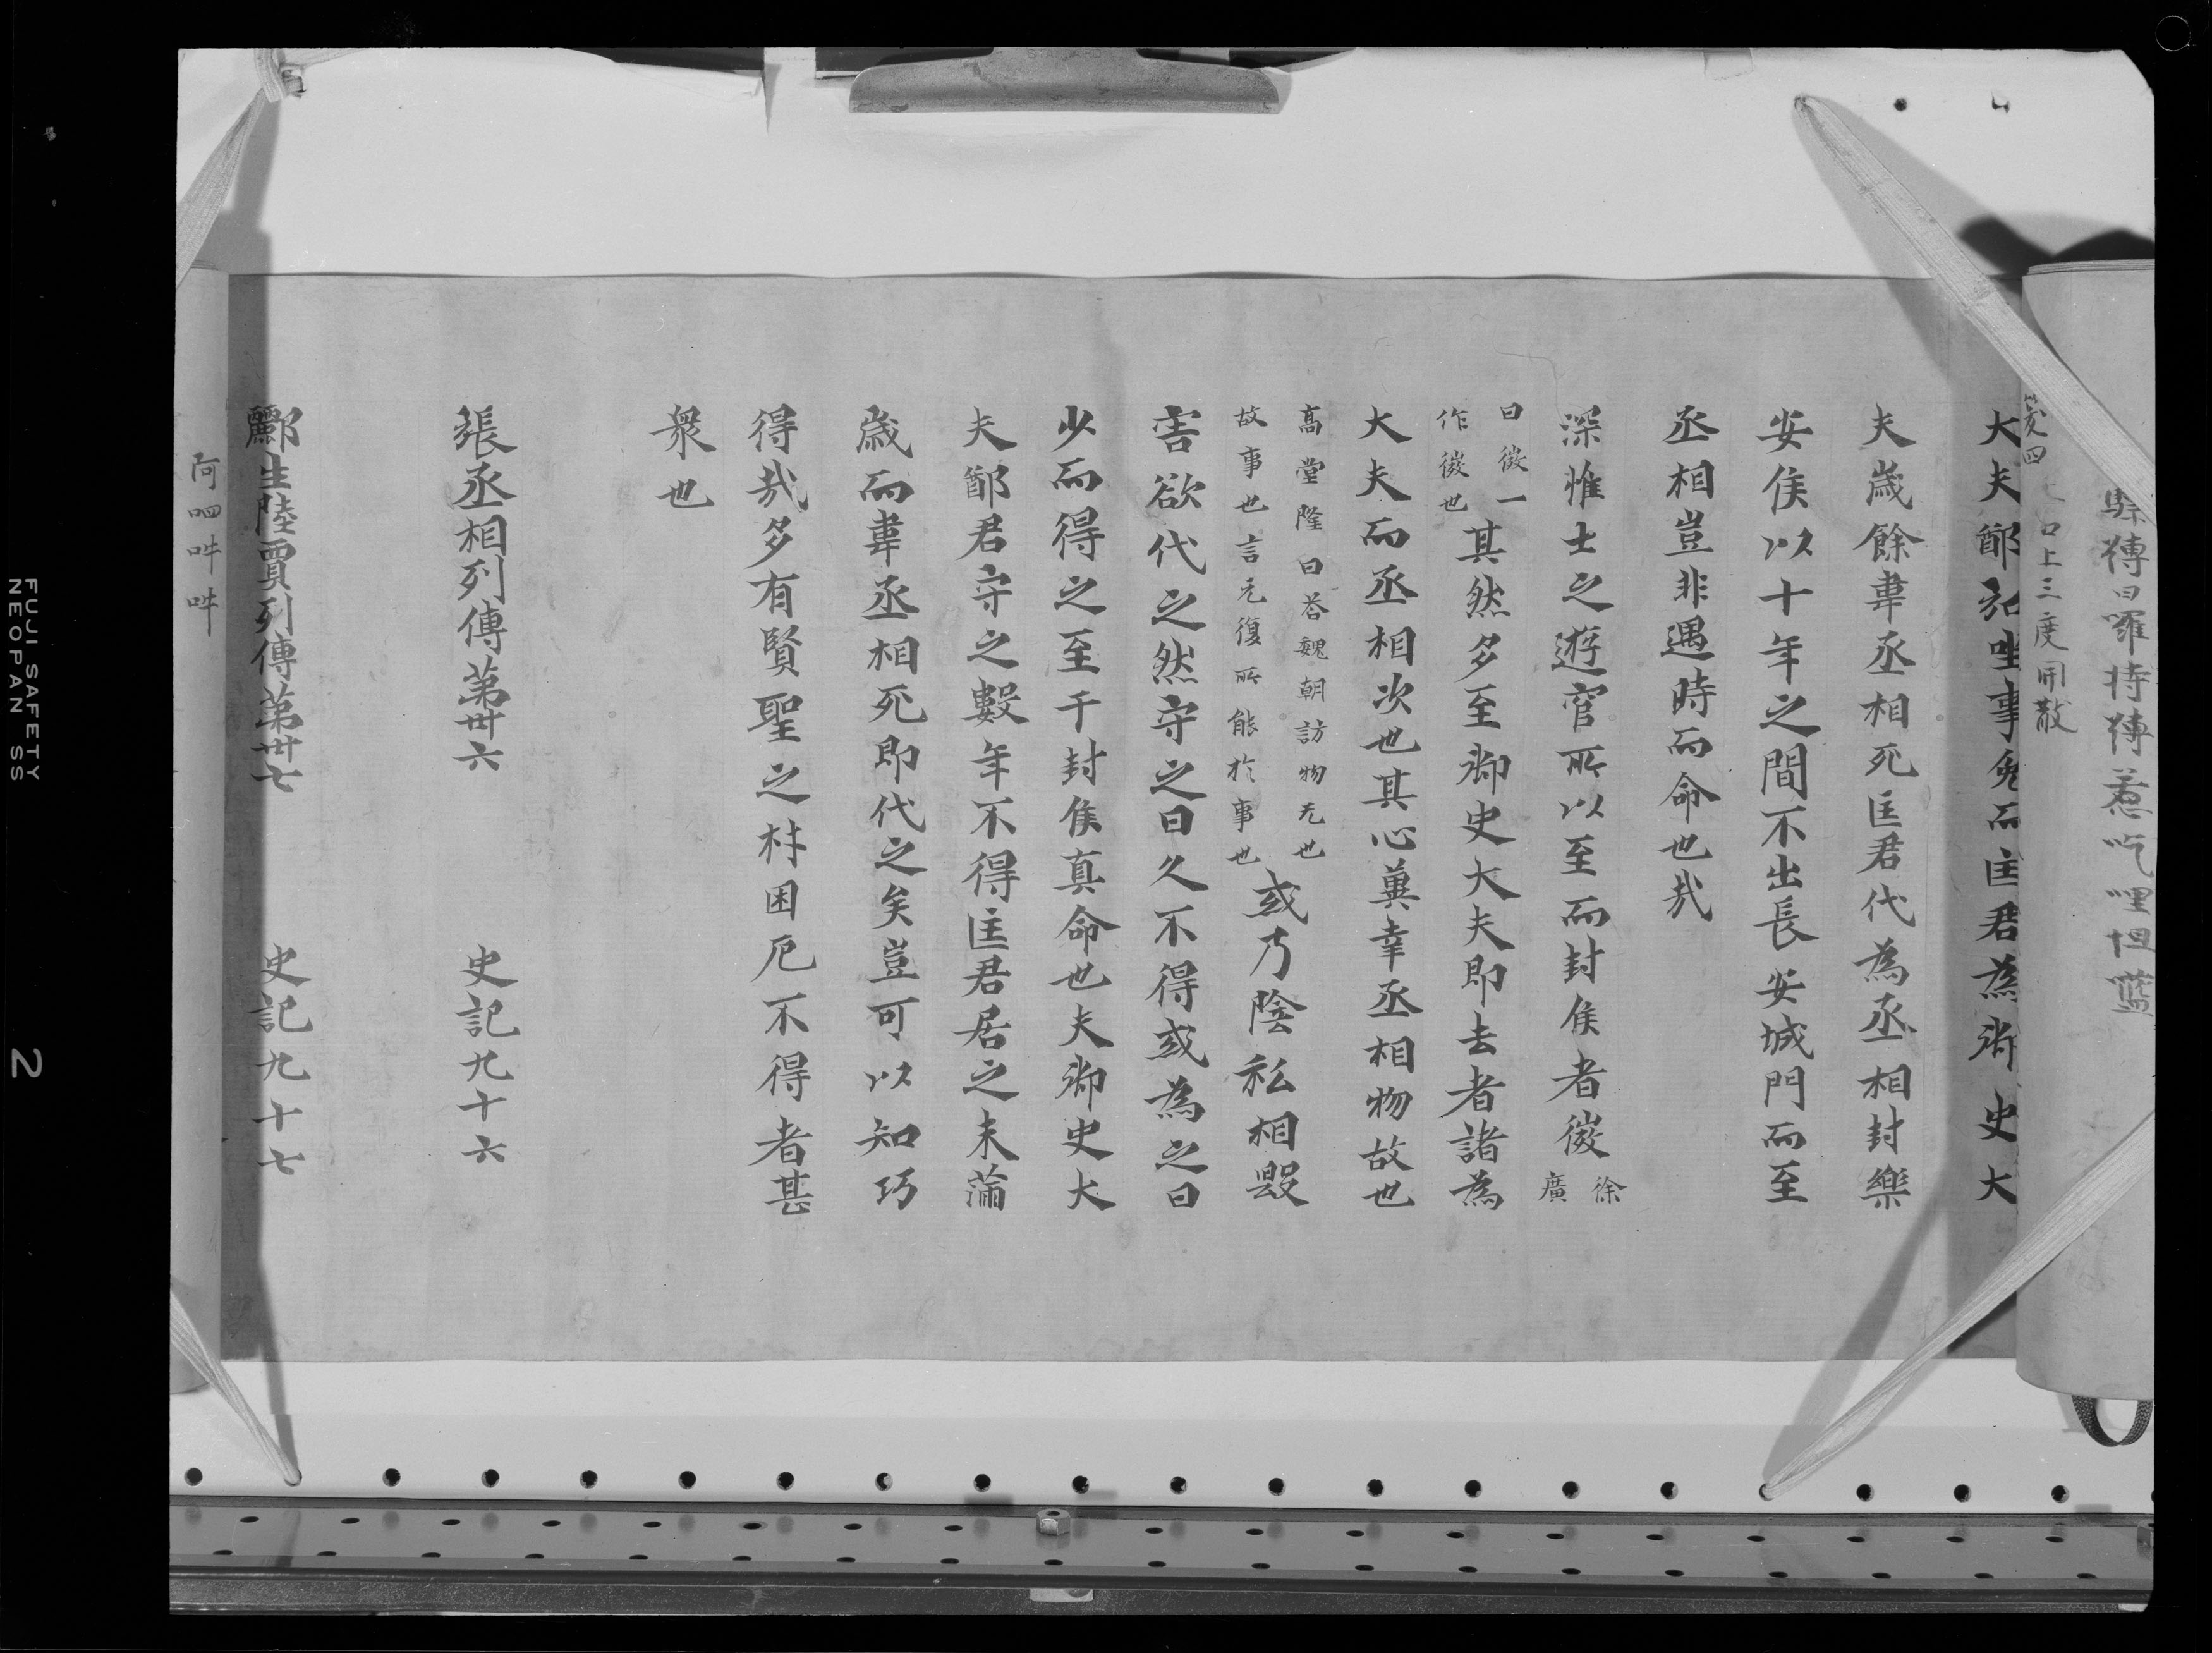 大夫鄭弘坐事免而匡君為御史大
夫歲餘韋丞相死匡君代為丞相封樂
安侯以十年之間不出長安城門而至
丞相豈非遇時而命也㢤
深惟士之遊宦所以至而封侯者微徐廣
曰微一作徴也其然多至御史大夫即去者諸為
大夫而丞相次也其心兾幸丞相物故也
高堂隆曰荅魏朝訪物无也故事也言无復所能於事也或乃陰私相毀
害欲代之然守之日久不得或為之日
少而得之至于封侯真命也夫御史大
夫鄭君守之數年不得匡君居之未蒲
歳而韋丞相死即代之矣豈可以知巧
得㢤多有賢聖之材困厄不得者甚
衆也
張丞相列傳第卅六 史記九十六
酈生陸賈列傳第卅七 史記九十七
口上三度開散
阿吅吽吽
FUJI SAFETY
NEOPAN SS
2